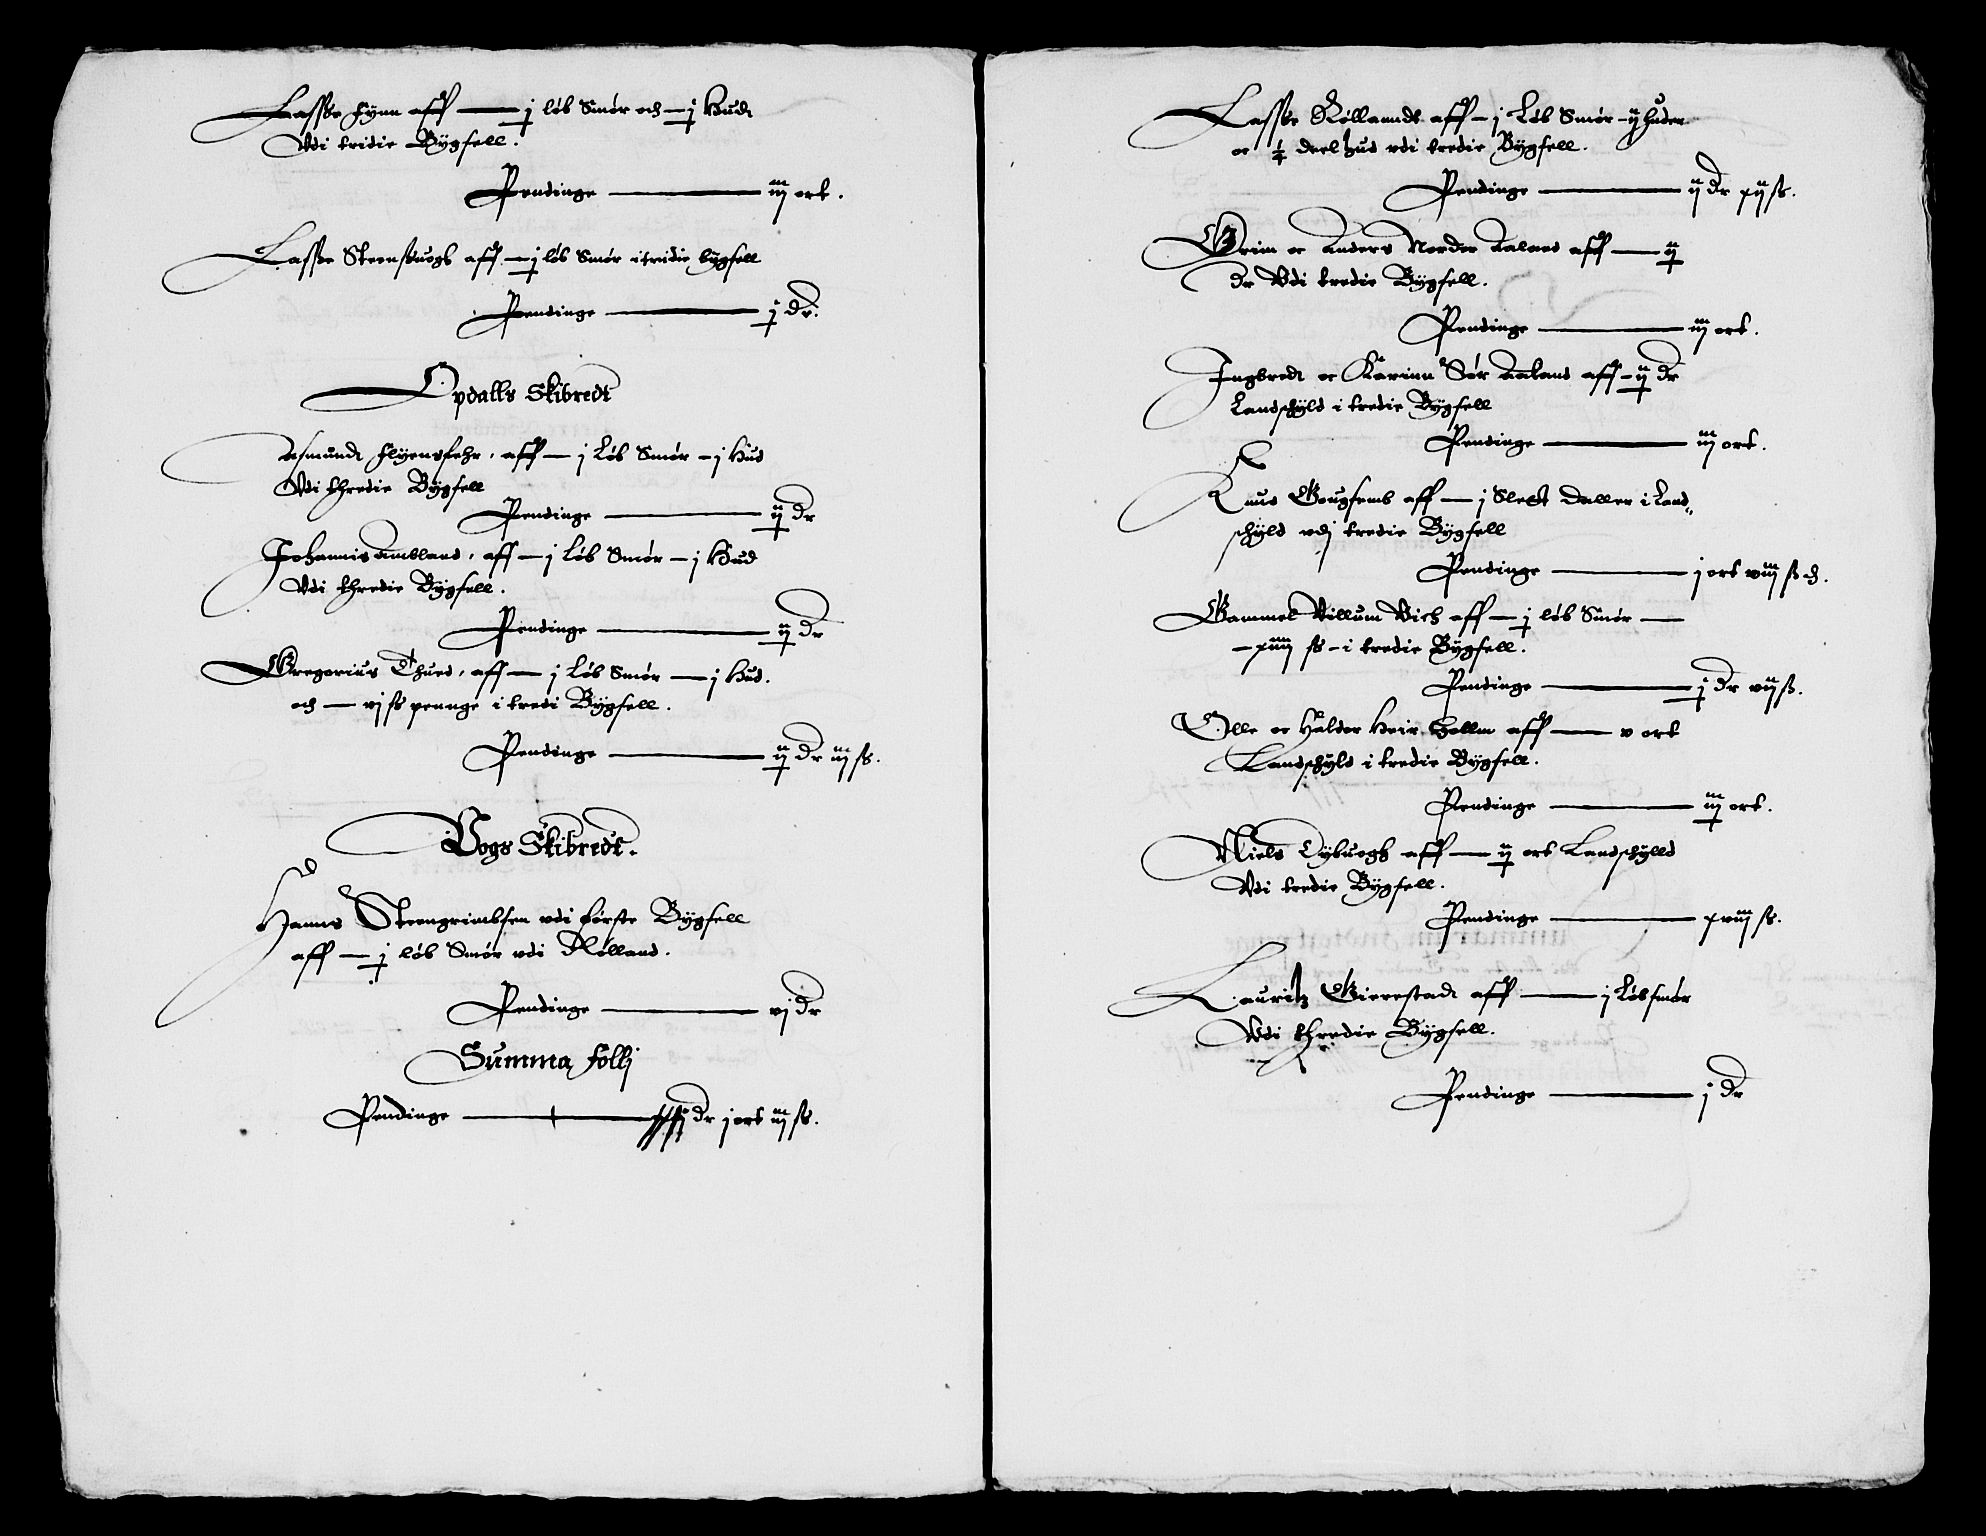 Lasse Fynn aff — j løb Smør och — j Hudt
Vdi tridie Bygsell.
Pendinge — iij ort.
Lasse Steensuogh aff — j løb Smør i tridie bygsell
Pendinge — j dr.
Opdalls Skibredt
Asmundt aff — j Løb Smør — j Hud
Vdi thredie Bygsell
Pendinge — ij dr
Johannis Ambland, aff — j Løb Smør — j Hud
Vdi thredie Bygsell.
Pendinge — ij dr
Gregorius Thued, aff — j Løb Smør — j Hud.
och — vj ss pennge i tredi Bygsell.
Pendinge — ij dr iij ss.
Vogs Skibredt.
Hanns Steengrimbsen vdi første Bygsell
aff — j løb Smør vdi Røllannd.
Pendinge — vj dr
Summa Follj
Pendinge — dr j ort iij ss.
Lasse Røllanndt aff — j Løb Smør — ij huder
oc ¼ deel hud vdi tredie Bygsell.
Pendinge — ij dr xij ss.
Grim oc Anders Nordre Aaland aff — ij
dr Vdi tredie Bygsell.
Pendinge — iij ort.
Ingbredt oc Karinn Sør Aaland aff — ij dr
Landschyld i tredie Bygsell
Pendinge — iij ort.
Knud aff — j Slett Daller i Land-
schyld vdj tredie Bygsell
Pendinge — j ort viij ss
Gammel Villum Vich aff — j løb Smør —
— xiiij ss — i tredie Bygsell.
Pendinge — j dr vij ss.
Olle oc Halder aff — v ort
Landschyld i tredie Bygsell.
Pendinge — iij ort.
Niels aff — ij ort Landschylld
Vdi tredie Bygsell.
Pendinge — xviij ss.
Lauritz Gierestadt aff — j Løb smør
Vdi thredie Bygsell.
Pendinge — j dr